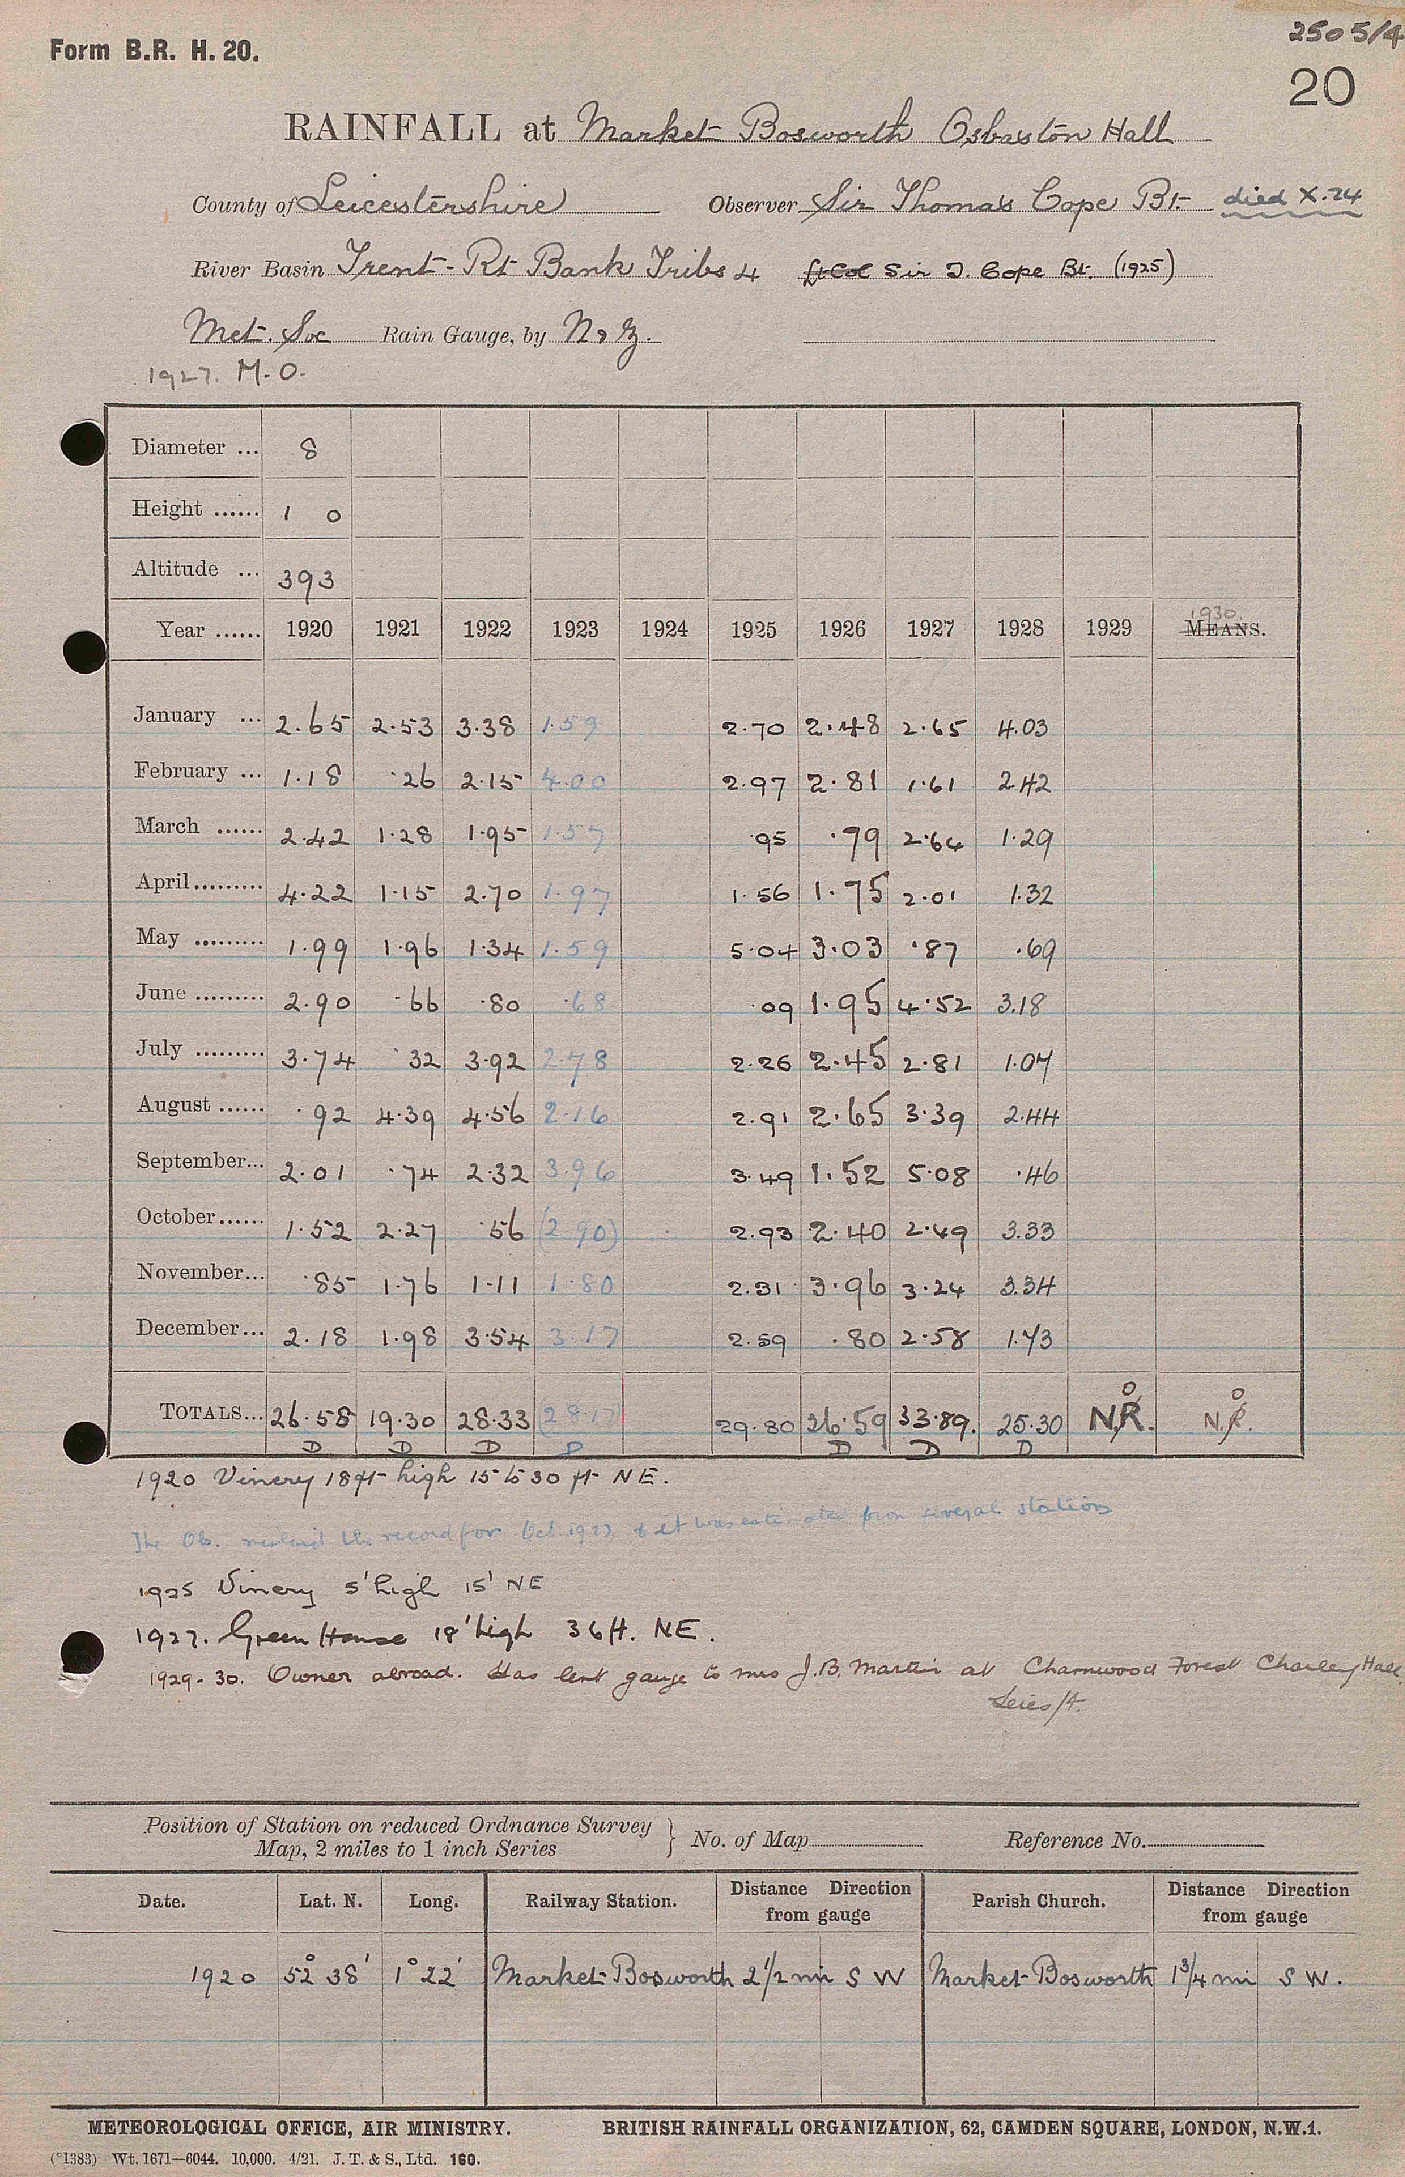 Form B.R. H. 20.
2505/4
20
RAINFALL at Market Bosworth Osbaston Hall
County of Leicestershire Observer Sir Thomas Cope Bt. died X.24
River Basin Trent - Rt Bank Tribs 4 Lt Col Sir T. Cope Bt. (1925)
Met. Soc Rain Gauge, by N & Z.
1927. M.O.
Diameter ... 8
Height ...... 1 0
Altitude ... 393
1930.
Year ...... 1920 1921 1922 1923 1924 1925 1926 1927 1928 1929 MEANS.
January ... 2.65 2.53 3.38 1.59 2.70 2.48 2.65 4.03
February ... 1.18 .26 2.15 4.00 2.97 2.81 1.61 2.42
March ...... 2.42 1.28 1.95 1.57 .95 .79 2.64 1.29
April......... 4.22 1.15 2.70 1.97 1.56 1.75 2.01 1.32
May ......... 1.99 1.96 1.34 1.59 5.04 3.03 .87 .69
June ......... 2.90 .66 .80 .68 .09 1.95 4.52 3.18
July ......... 3.74 .32 3.92 2.78 2.26 2.45 2.81 1.07
August ...... .92 4.39 4.56 2.16 2.91 2.65 3.39 2.44
September... 2.01 .74 2.32 3.96 3.49 1.52 5.08 .46
October...... 1.52 2.27 .56 (2.90) 2.93 2.40 2.49 3.33
November... .85 1.76 1.11 1.80 2.31 3.96 3.24 3.34
December... 2.18 1.98 3.54 3.17 2.59 .80 2.58 1.73
TOTALS... 26.58 19.30 28.33 (28.17) 29.80 26.59 33.89. 25.30 N.R. N.R.
D D D D D D D
1920 Vinery 18ft high 15 to 30 ft NE.
The Ob. the record for Oct. 1923 & it was estimated from several stations
1925 Vinery 5' high 15' NE
1927. Green House 18' high 36 ft. NE.
1929-30. Owner abroad. Has lent gauge to Mrs J.B. Martin at Charnwood Forest Charley Hall
Leics/4.
Position of Station on reduced Ordnance Survey
Map, 2 miles to 1 inch Series } No. of Map Reference No.
Date. Lat. N. Long. Railway Station. Distance Direction from gauge Parish Church. Distance Direction from gauge
1920 52° 38' 1° 22' Market Bosworth 2 1/2 mi S W Market Bosworth 1 3/4 mi S W.
METEOROLOGICAL OFFICE, AIR MINISTRY. BRITISH RAINFALL ORGANIZATION, 62, CAMDEN SQUARE, LONDON, N.W.1.
(*1383) Wt. 1671—6044. 10,000. 4/21. J. T. & S., Ltd. 160.